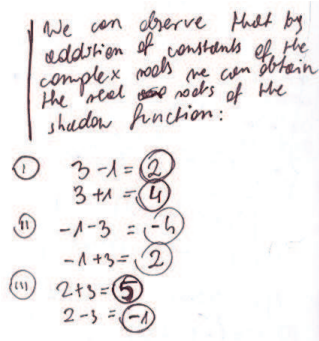 We can observe that by
addition of constants of the
complex roots we can obtain
the real roots of the
shadow function:
(i) 3-1=2
3+1=4
(ii) -1-3 = -4
-1+3= 2
(iii) 2+3=5
2-3=-1